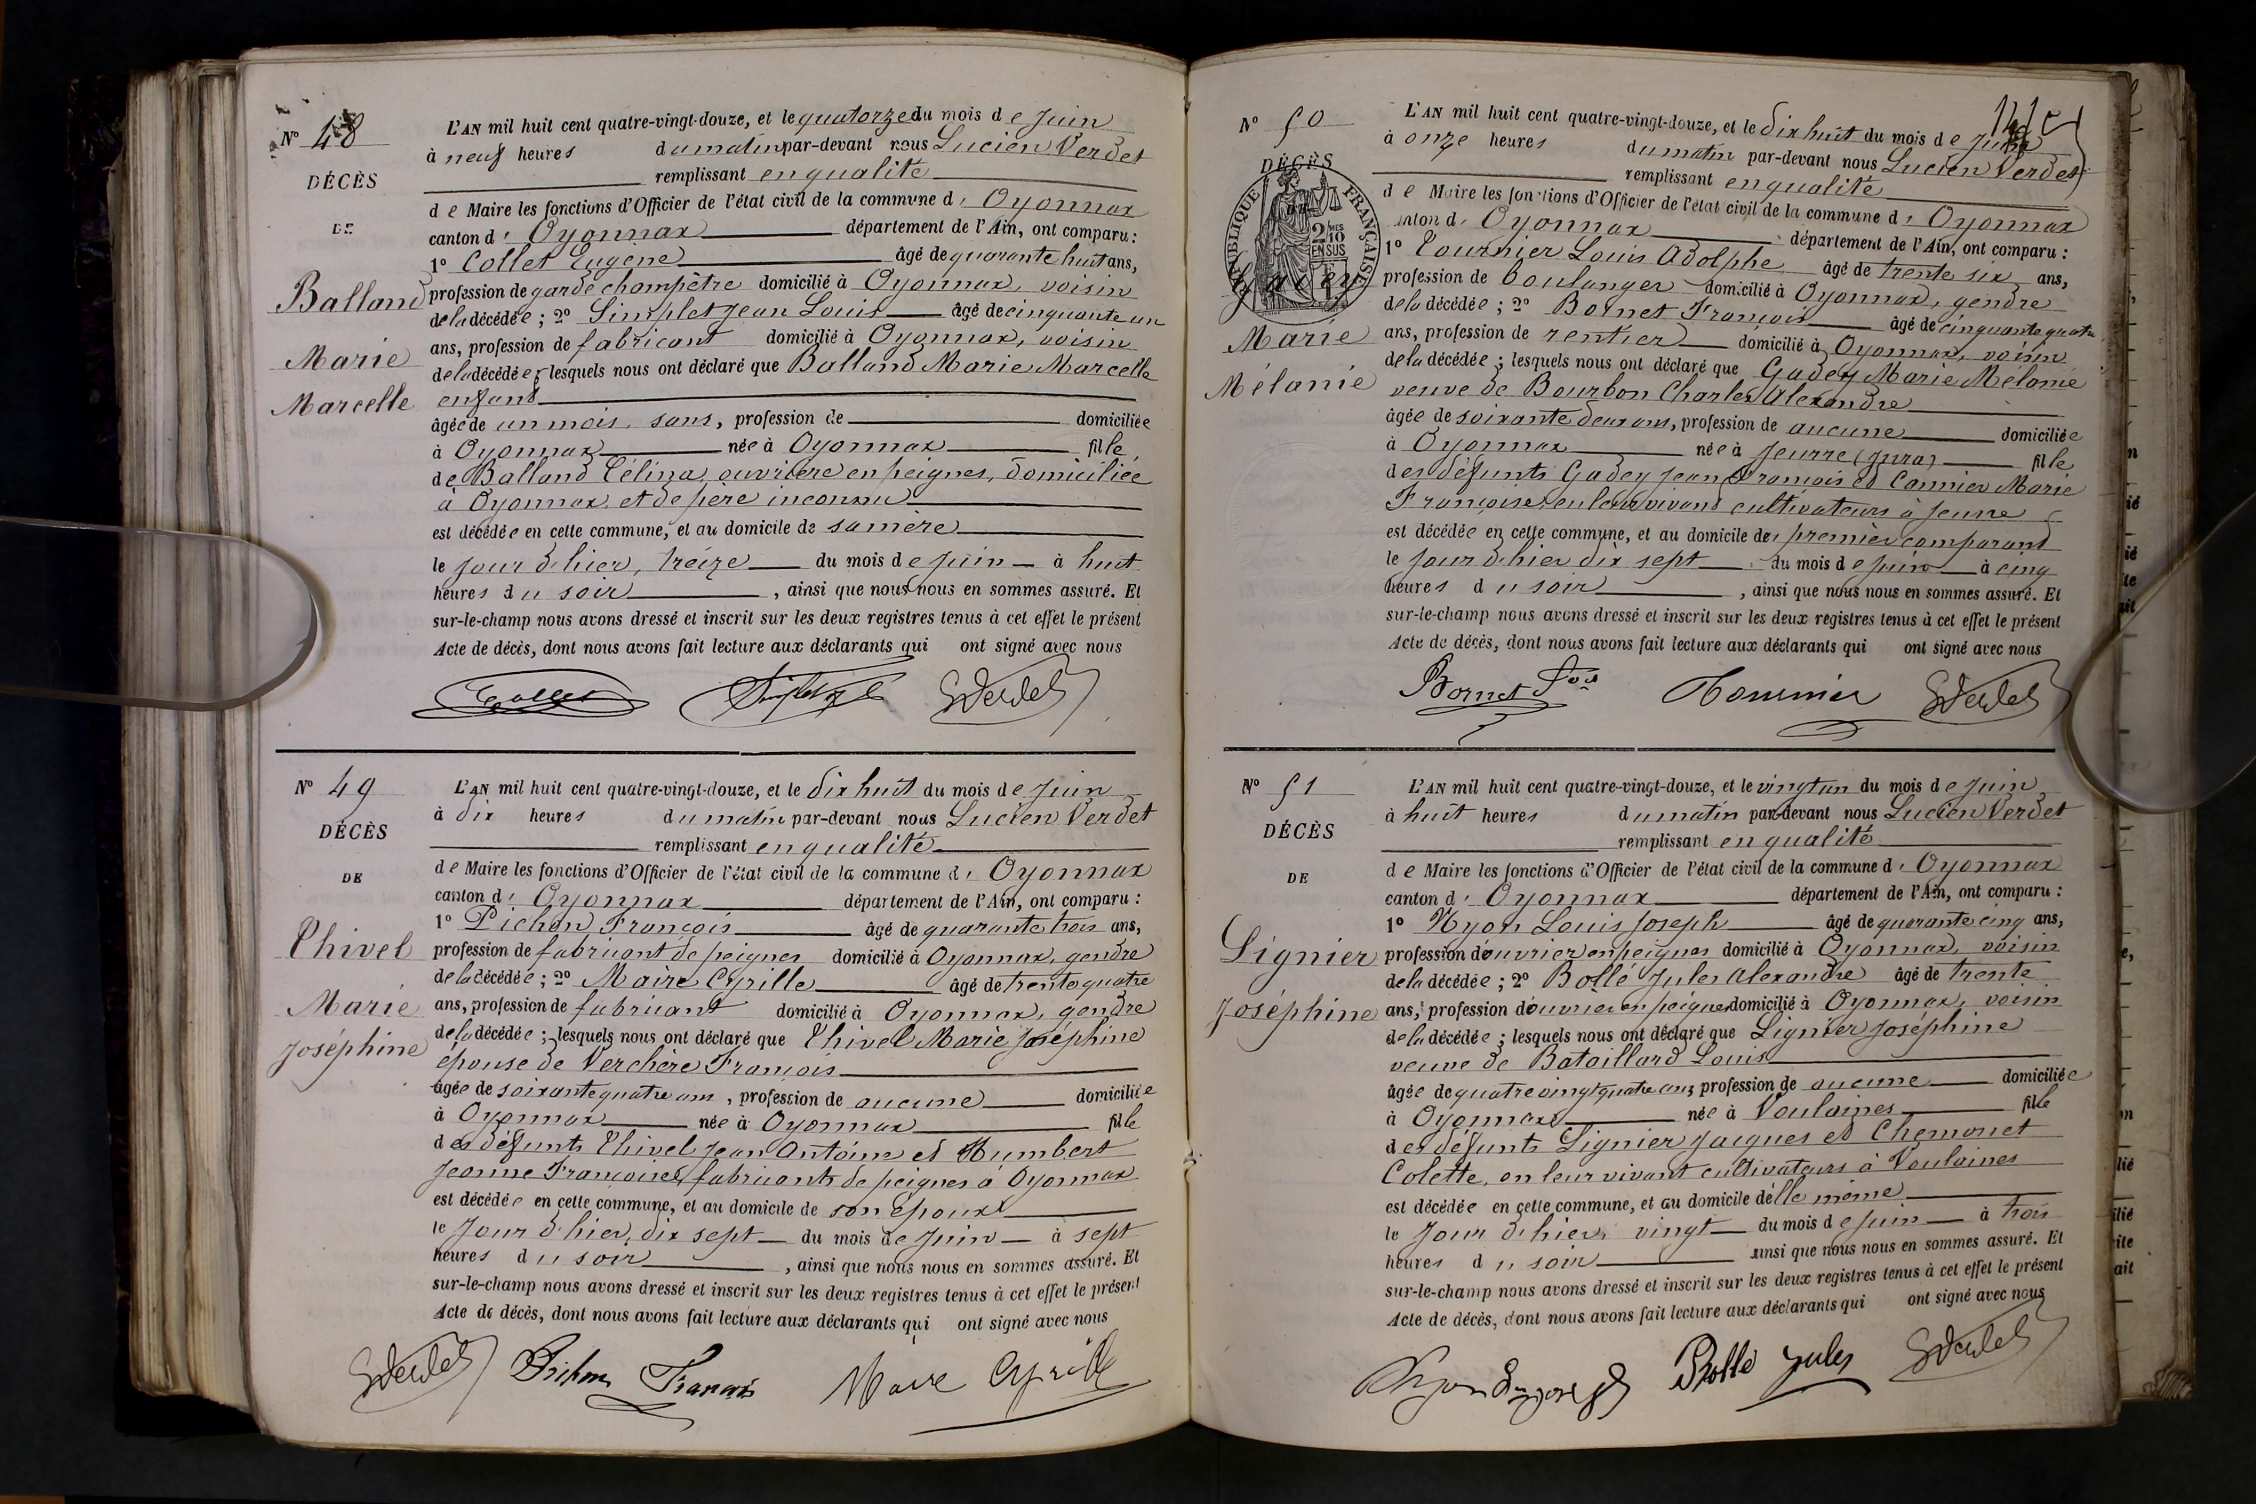 N° 48
DÉCÈS
DE
Balland
Marie
Marcelle
L'AN mil huit cent quatre-vingt-douze, et le quatorze du mois de juin
à neuf heures du matin par-devant nous Lucien Verdet
remplissant en qualité
de Maire les fonctions d'Officier de l'état civil de la commune d' Oyonnax
canton d' Oyonnax département de l'Ain, ont comparu :
1° Collet Eugène âgé de quarante huit ans,
profession de garde champêtre domicilié à Oyonnax, voisin
de la décédée ; 2° Simplet Jean Louis âgé de cinquante un
ans, profession de fabricant domicilié à Oyonnax, voisin
de la décédée ; lesquels nous ont déclaré que Balland Marie Marcelle
enfant
âgée de un mois, sans, profession de domiciliée
à Oyonnax née à Oyonnax fille
de Balland Célina, ouvrière en peignes, domiciliée
à Oyonnax et de père inconnu
est décédée en cette commune, et au domicile de sa mère
le jour d'hier, treize du mois de juin à huit
heures du soir, ainsi que nous nous en sommes assuré. Et
sur-le-champ nous avons dressé et inscrit sur les deux registres tenus à cet effet le présent
Acte de décès, dont nous avons fait lecture aux déclarants qui ont signé avec nous
Collet Simplet GVerdet
N° 49
DÉCÈS
DE
Chivel
Marie
Joséphine
L'AN mil huit cent quatre-vingt-douze, et le dix huit du mois de juin
à dix heures du matin par-devant nous Lucien Verdet
remplissant en qualité
de Maire les fonctions d'Officier de l'état civil de la commune d' Oyonnax
canton d' Oyonnax département de l'Ain, ont comparu :
1° Pichon François âgé de quarante trois ans,
profession de fabricant de peignes domicilié à Oyonnax, gendre
de la décédée ; 2° Maire Cyrille âgé de trente quatre
ans, profession de fabricant domicilié à Oyonnax, gendre
de la décédée ; lesquels nous ont déclaré que Chivel Marie Joséphine
épouse de Verchère François
âgée de soixante quatre ans, profession de aucune domiciliée
à Oyonnax née à Oyonnax fille
des défunts Chivel Jean Antoine et Humbert
Jeanne Françoise, fabricants de peignes à Oyonnax
est décédée en cette commune, et au domicile de son époux
le jour d'hier, dix sept du mois de juin à sept
heures du soir, ainsi que nous nous en sommes assuré. Et
sur-le-champ nous avons dressé et inscrit sur les deux registres tenus à cet effet le présent
Acte de décès, dont nous avons fait lecture aux déclarants qui ont signé avec nous
GVerdet Pichon François Maire Cyrille
N° 50
DÉCÈS
RÉPUBLIQUE FRANÇAISE
2/10 MES
EN SUS
Gadey
Marie
Mélanie
L'AN mil huit cent quatre-vingt-douze, et le dix huit du mois de juin
à onze heures du matin par-devant nous Lucien Verdet
remplissant en qualité
de Maire les fonctions d'Officier de l'état civil de la commune d' Oyonnax
canton d' Oyonnax département de l'Ain, ont comparu :
1° Tournier Louis Adolphe âgé de trente six ans,
profession de boulanger domicilié à Oyonnax, gendre
de la décédée ; 2° Bornet François âgé de cinquante quatre
ans, profession de rentier domicilié à Oyonnax, voisin
de la décédée ; lesquels nous ont déclaré que Gadey Marie Mélanie
veuve de Bourbon Charles Alexandre
âgée de soixante deux ans, profession de aucune domiciliée
à Oyonnax née à Jeurre (Jura) fille
des défunts Gadey Jean François et Cannier Marie
Françoise, en leur vivant cultivateurs à Jeurre
est décédée en cette commune, et au domicile du premier comparant
le jour d'hier dix sept du mois de juin à cinq
heures du soir, ainsi que nous nous en sommes assuré. Et
sur-le-champ nous avons dressé et inscrit sur les deux registres tenus à cet effet le présent
Acte de décès, dont nous avons fait lecture aux déclarants qui ont signé avec nous
Bornet Fois Tournier GVerdet
N° 51
DÉCÈS
DE
Lignier
Joséphine
L'AN mil huit cent quatre-vingt-douze, et le vingt un du mois de juin
à huit heures du matin par-devant nous Lucien Verdet
remplissant en qualité
de Maire les fonctions d'Officier de l'état civil de la commune d' Oyonnax
canton d' Oyonnax département de l'Ain, ont comparu :
1° Hyon Louis Joseph âgé de quarante cinq ans,
profession d'ouvrier en peignes domicilié à Oyonnax, voisin
de la décédée ; 2° Bollé Jules Alexandre âgé de trente
ans, profession d'ouvrier en peignes domicilié à Oyonnax, voisin
de la décédée ; lesquels nous ont déclaré que Lignier Joséphine
veuve de Bataillard Louis
âgée de quatre vingt quatre ans, profession de aucune domiciliée
à Oyonnax née à Voulaines fille
des défunts Lignier Jacques et Chemonet
Colette, en leur vivant cultivateurs à Voulaines
est décédée en cette commune, et au domicile d'elle même
le jour d'hier, vingt du mois de juin à trois
heures du soir ainsi que nous nous en sommes assuré. Et
sur-le-champ nous avons dressé et inscrit sur les deux registres tenus à cet effet le présent
Acte de décès, dont nous avons fait lecture aux déclarants qui ont signé avec nous
Bollé Jules GVerdet